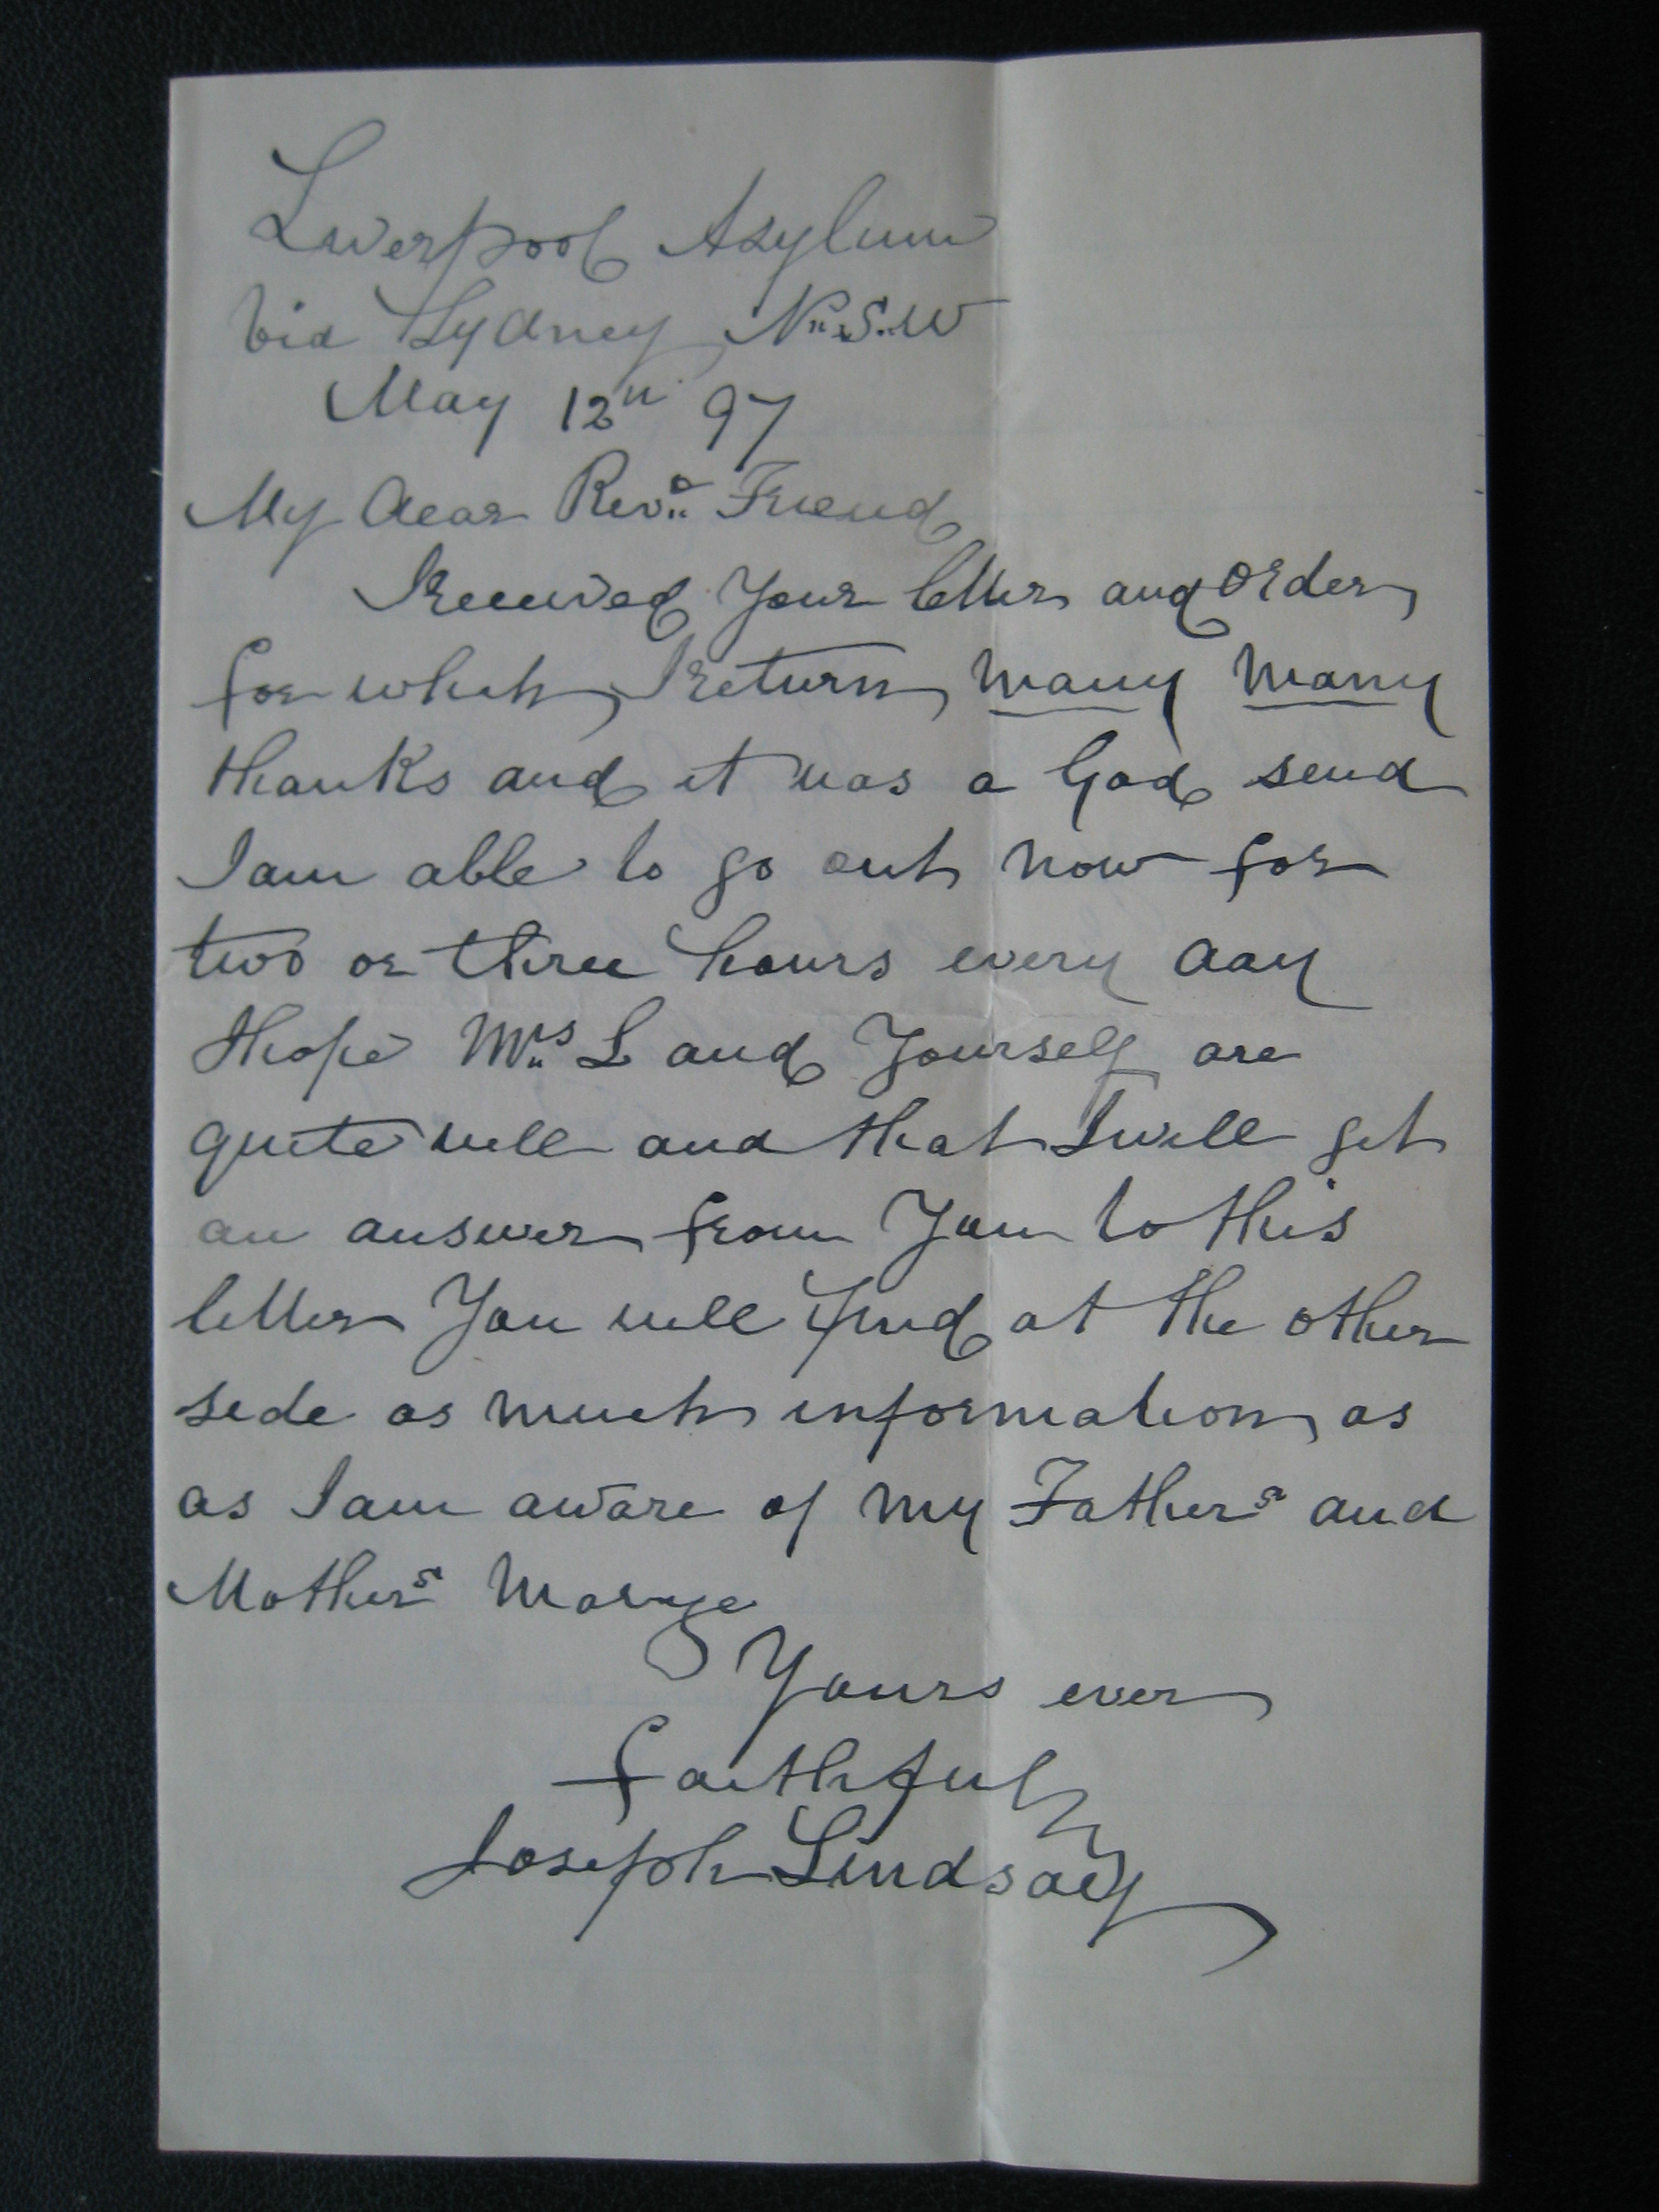 Liverpool Asylum
Via Sydney N.S.W
May 12th 97
My dear Revd Friend
I received Your letter and order
for which I return many many
thanks and it was a God send
I am able to go out now for
two or three hours every day
I hope Mrs L and Yourself are
quite well and that I will get
an answer from You to this
letter You will find at the other
side as much information as
as I am aware of my Fathers and
Mothers
Yours ever
faithfully
Joseph Lindsay